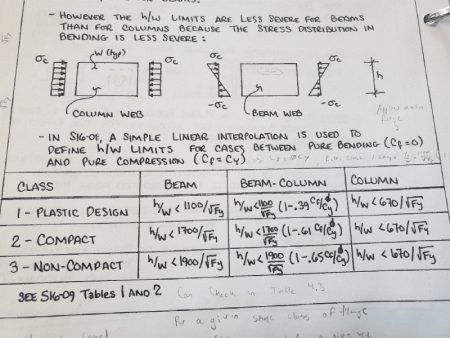 - HOWEVER THE h/w LIMITS ARE LESS SEVERE FOR BEAMS
THAN FOR COLUMNS BECAUSE THE STRESS DISTRIBUTION IN
BENDING IS LESS SEVERE :
σc w (typ) σc σc σc
h
-σc -σc
COLUMN WEB BEAM WEB
- IN S16-01, A SIMPLE LINEAR INTERPOLATION IS USED TO
DEFINE h/w LIMITS FOR CASES BETWEEN PURE BENDING (Cf = 0)
AND PURE COMPRESSION (Cf = Cy)
CLASS BEAM BEAM-COLUMN COLUMN
1 - PLASTIC DESIGN h/w < 1100/√Fy h/w < 1100/√Fy (1-.39 Cf/Cy) h/w < 670/√Fy
2 - COMPACT h/w < 1700/√Fy h/w < 1700/√Fy (1-.61 Cf/Cy) h/w < 670/√Fy
3 - NON-COMPACT h/w < 1900/√Fy h/w < 1900/√Fy (1-.65 Cf/Cy) h/w < 670/√Fy
SEE S16-09 Tables 1 AND 2 Can Check in Table 4.3
For a given shape class of flange